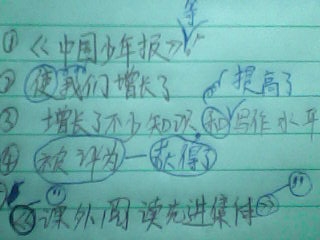 等
① 《中国少年报》
② 使我们增长了 提高了
③ 增长了不少知识和写作水平
④ 被评为—获得了
《课外阅读先进集体》